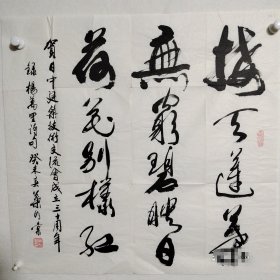 接天蓮葉
無窮碧映日
荷花別樣紅
賀日中建築技術交流會成立三十周年
錄楊萬里詩句 癸未英